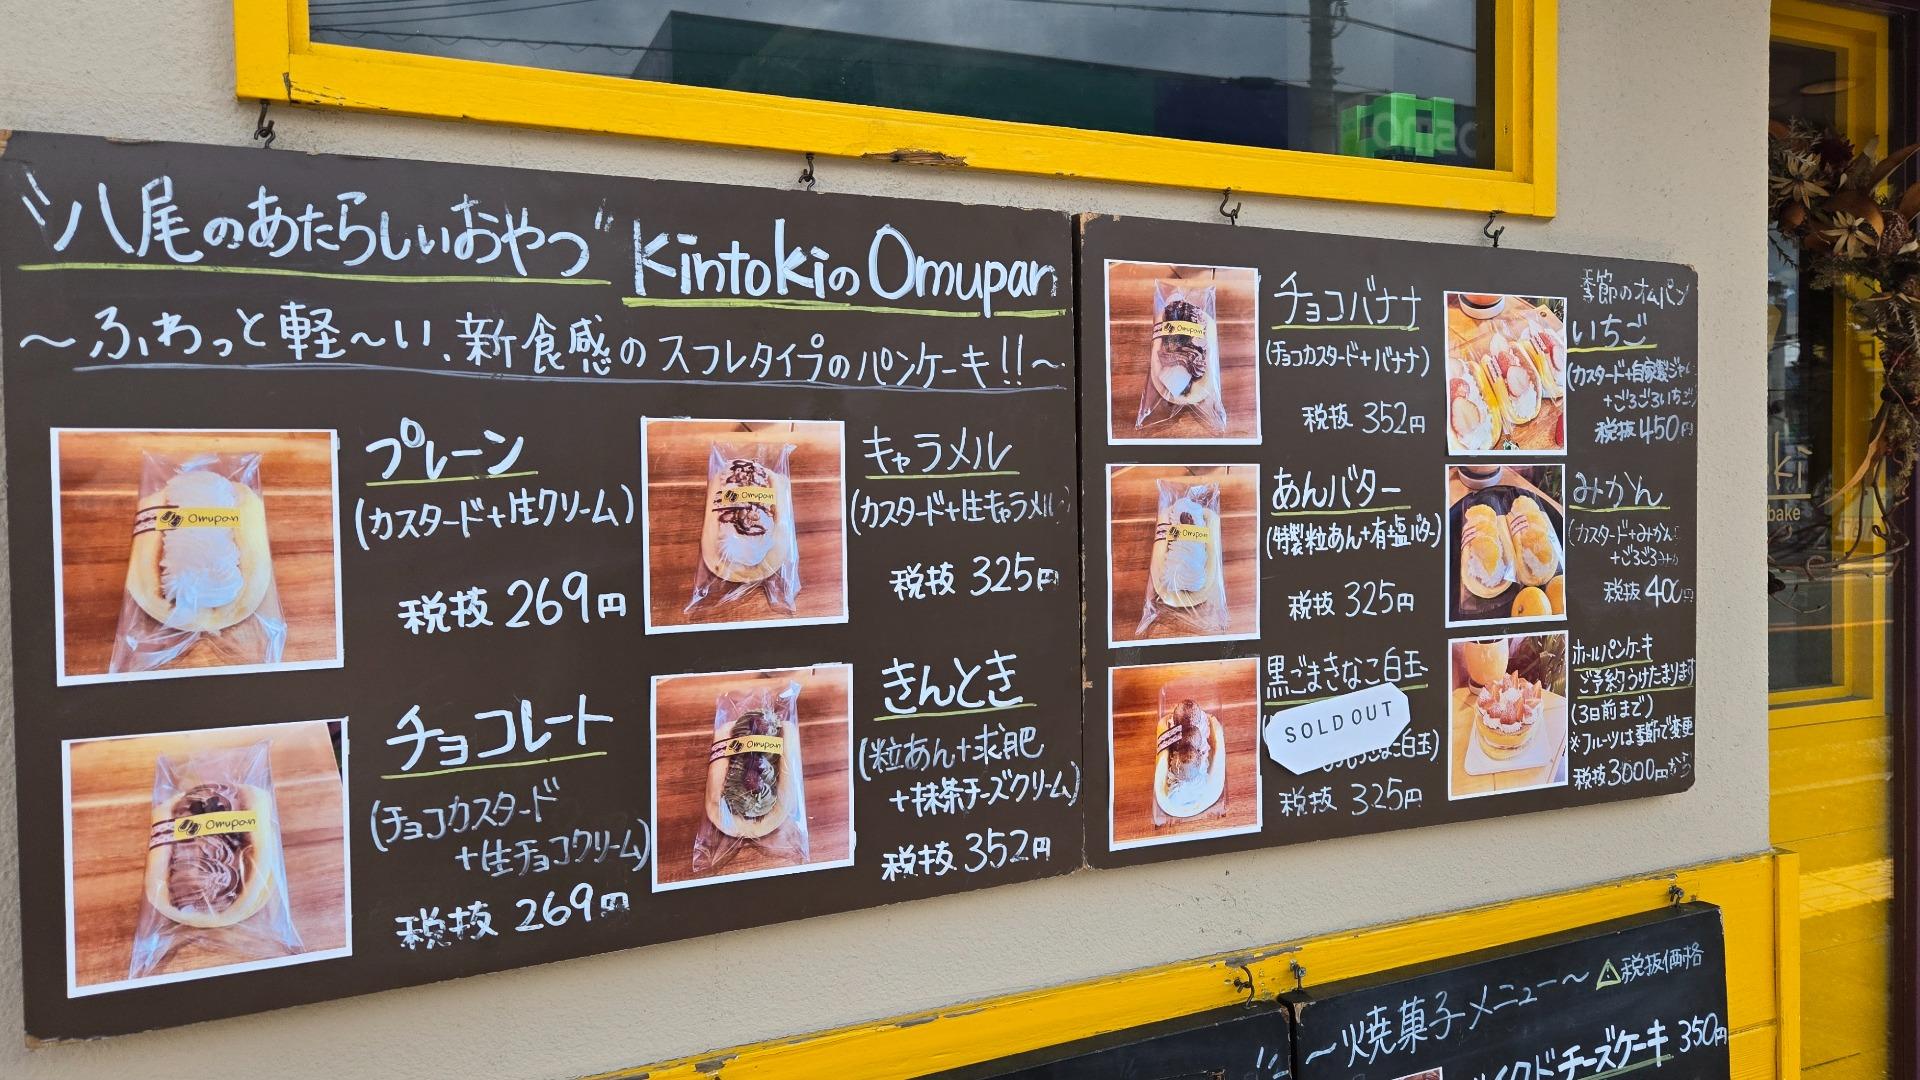 "八尾のあたらしいおやつ" KintokiのOmupan
～ふわっと軽～い、新食感のスフレタイプのパンケーキ!!～
プレーン
(カスタード+生クリーム)
税抜 269円
Omupan
チョコレート
(チョコカスタード
+生チョコクリーム)
税抜 269円
Omupan
キャラメル
(カスタード+生キャラメル)
税抜 325円
Omupan
きんとき
(粒あん+求肥
+抹茶チーズクリーム)
税抜 352円
Omupan
チョコバナナ
(チョコカスタード+バナナ)
税抜 352円
Omupan
あんバター
(特製粒あん+有塩バター)
税抜 325円
Omupan
黒ごまきなこ白玉
SOLD OUT
白玉)
税抜 325円
季節のオムパン
いちご
(カスタード+自家製ジャ
+ごろごろいちご)
税抜 450円
みかん
(カスタード+みかん
+ごろごろ
税抜 400円
ホールパンケーキ
ご予約うけたまります
(3日前まで)
※フルーツは季節で変更
税抜 3000円から
～焼菓子メニュー～ ⚠税抜価格
チーズケーキ 350円
ki
bake